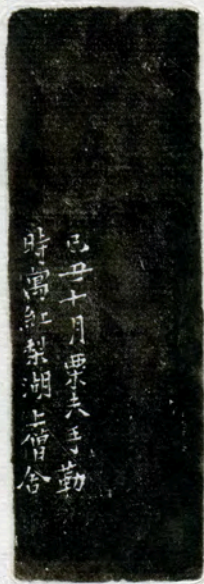 己丑十月栗夫手勒
時寓紅梨湖上僧舍